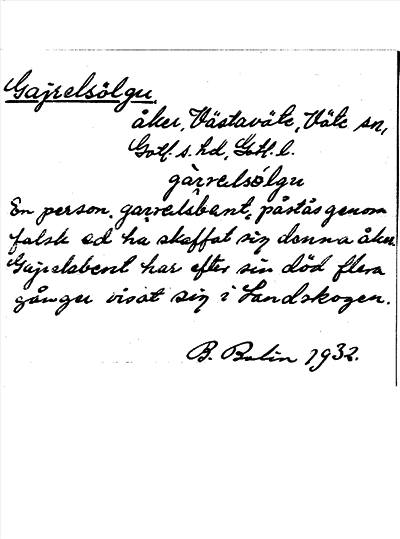 Gajrelsölgu
åker, Västaväte, Väte sn,
Gotl. s. hd, Gotl. l.
gàrrelsölgu
En person, garrelsbent, påstås genom
falsk ed ha skaffat sig denna åker.
Gajrelsbent har efter sin död flera
gånger visat sig i Sandskogen.
B. Bolin 1932.